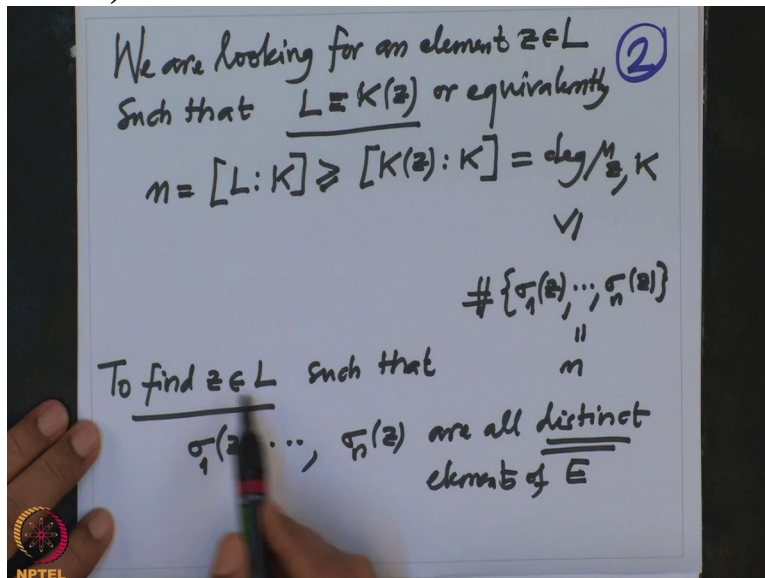 We are looking for an element z∈L
②
Such that L = K(z) or equivalently
n = [L:K] ⩾ [K(z):K] = deg μ_z,K
\/|
#{σ₁(z),⋯,σₙ(z)}
||
n
To find z∈L such that
σ₁(z) ⋯, σₙ(z) are all distinct
elements of E
NPTEL